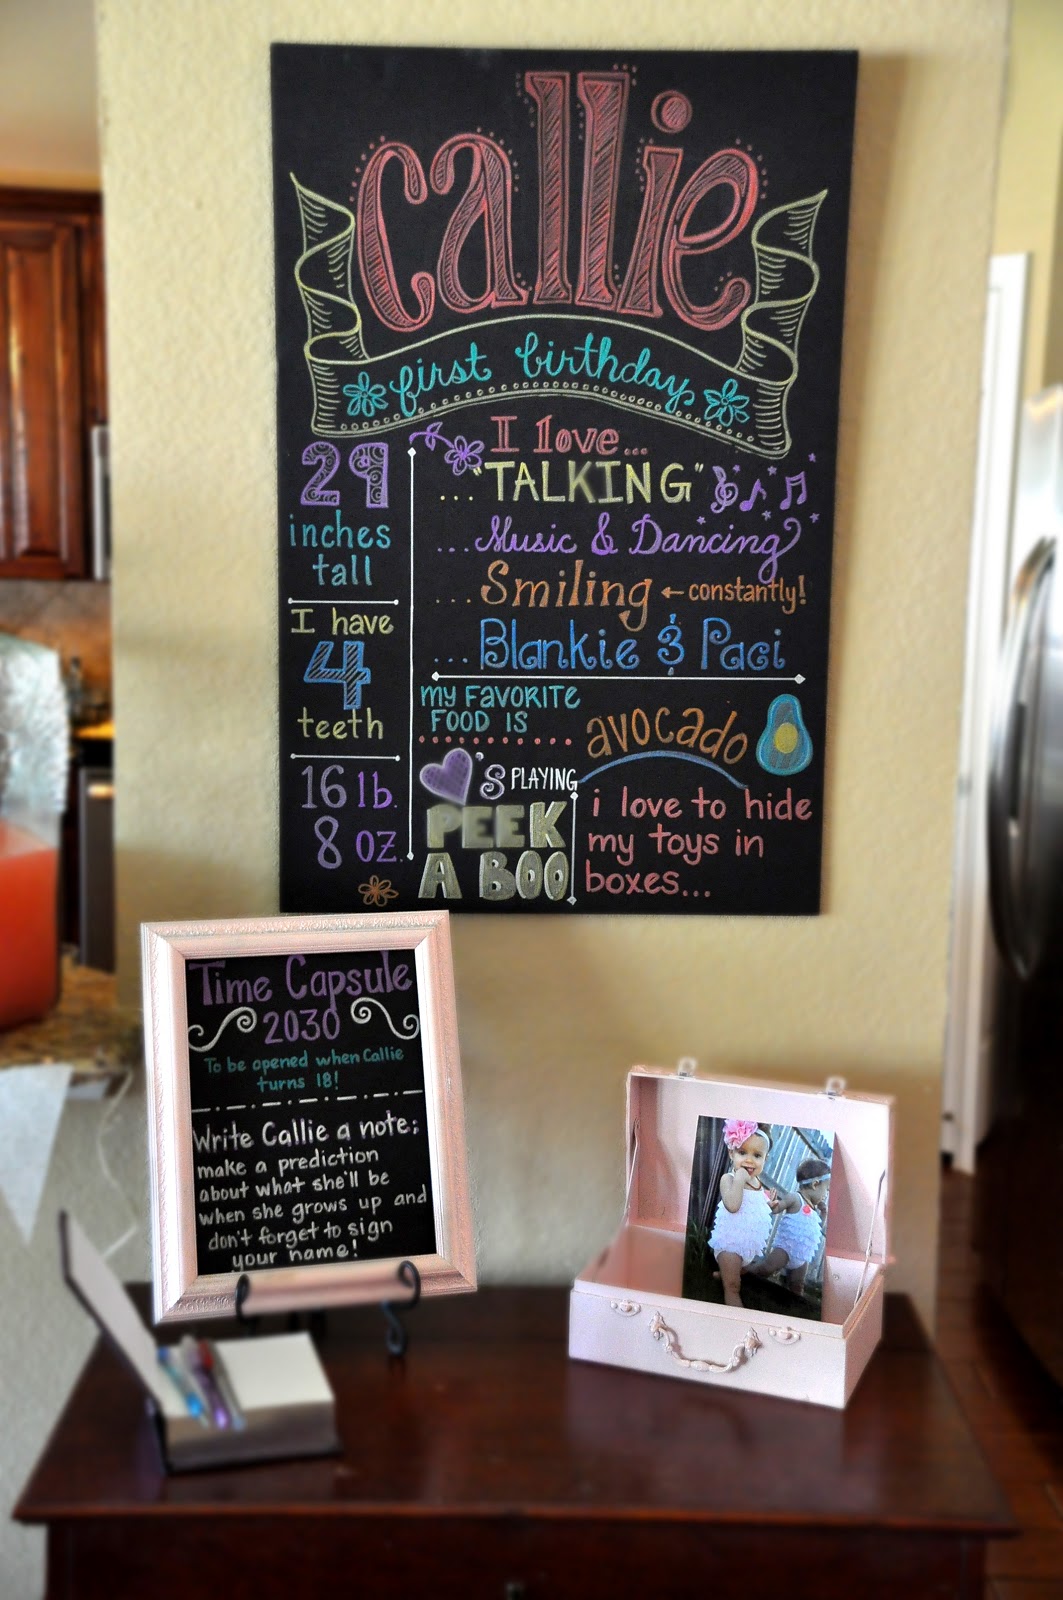 Callie
first birthday
29
inches
tall
I have
4
teeth
16 lb.
8 oz.
I love...
... "TALKING"
... Music & Dancing
... Smiling ← constantly!
... Blankie & Paci
my FAVORITE
FOOD IS
avocado
♥'S PLAYING
PEEK
A BOO
i love to hide
my toys in
boxes...
Time Capsule
2030
To be opened when Callie
turns 18!
Write Callie a note;
make a prediction
about what she'll be
when she grows up and
don't forget to sign
your name!